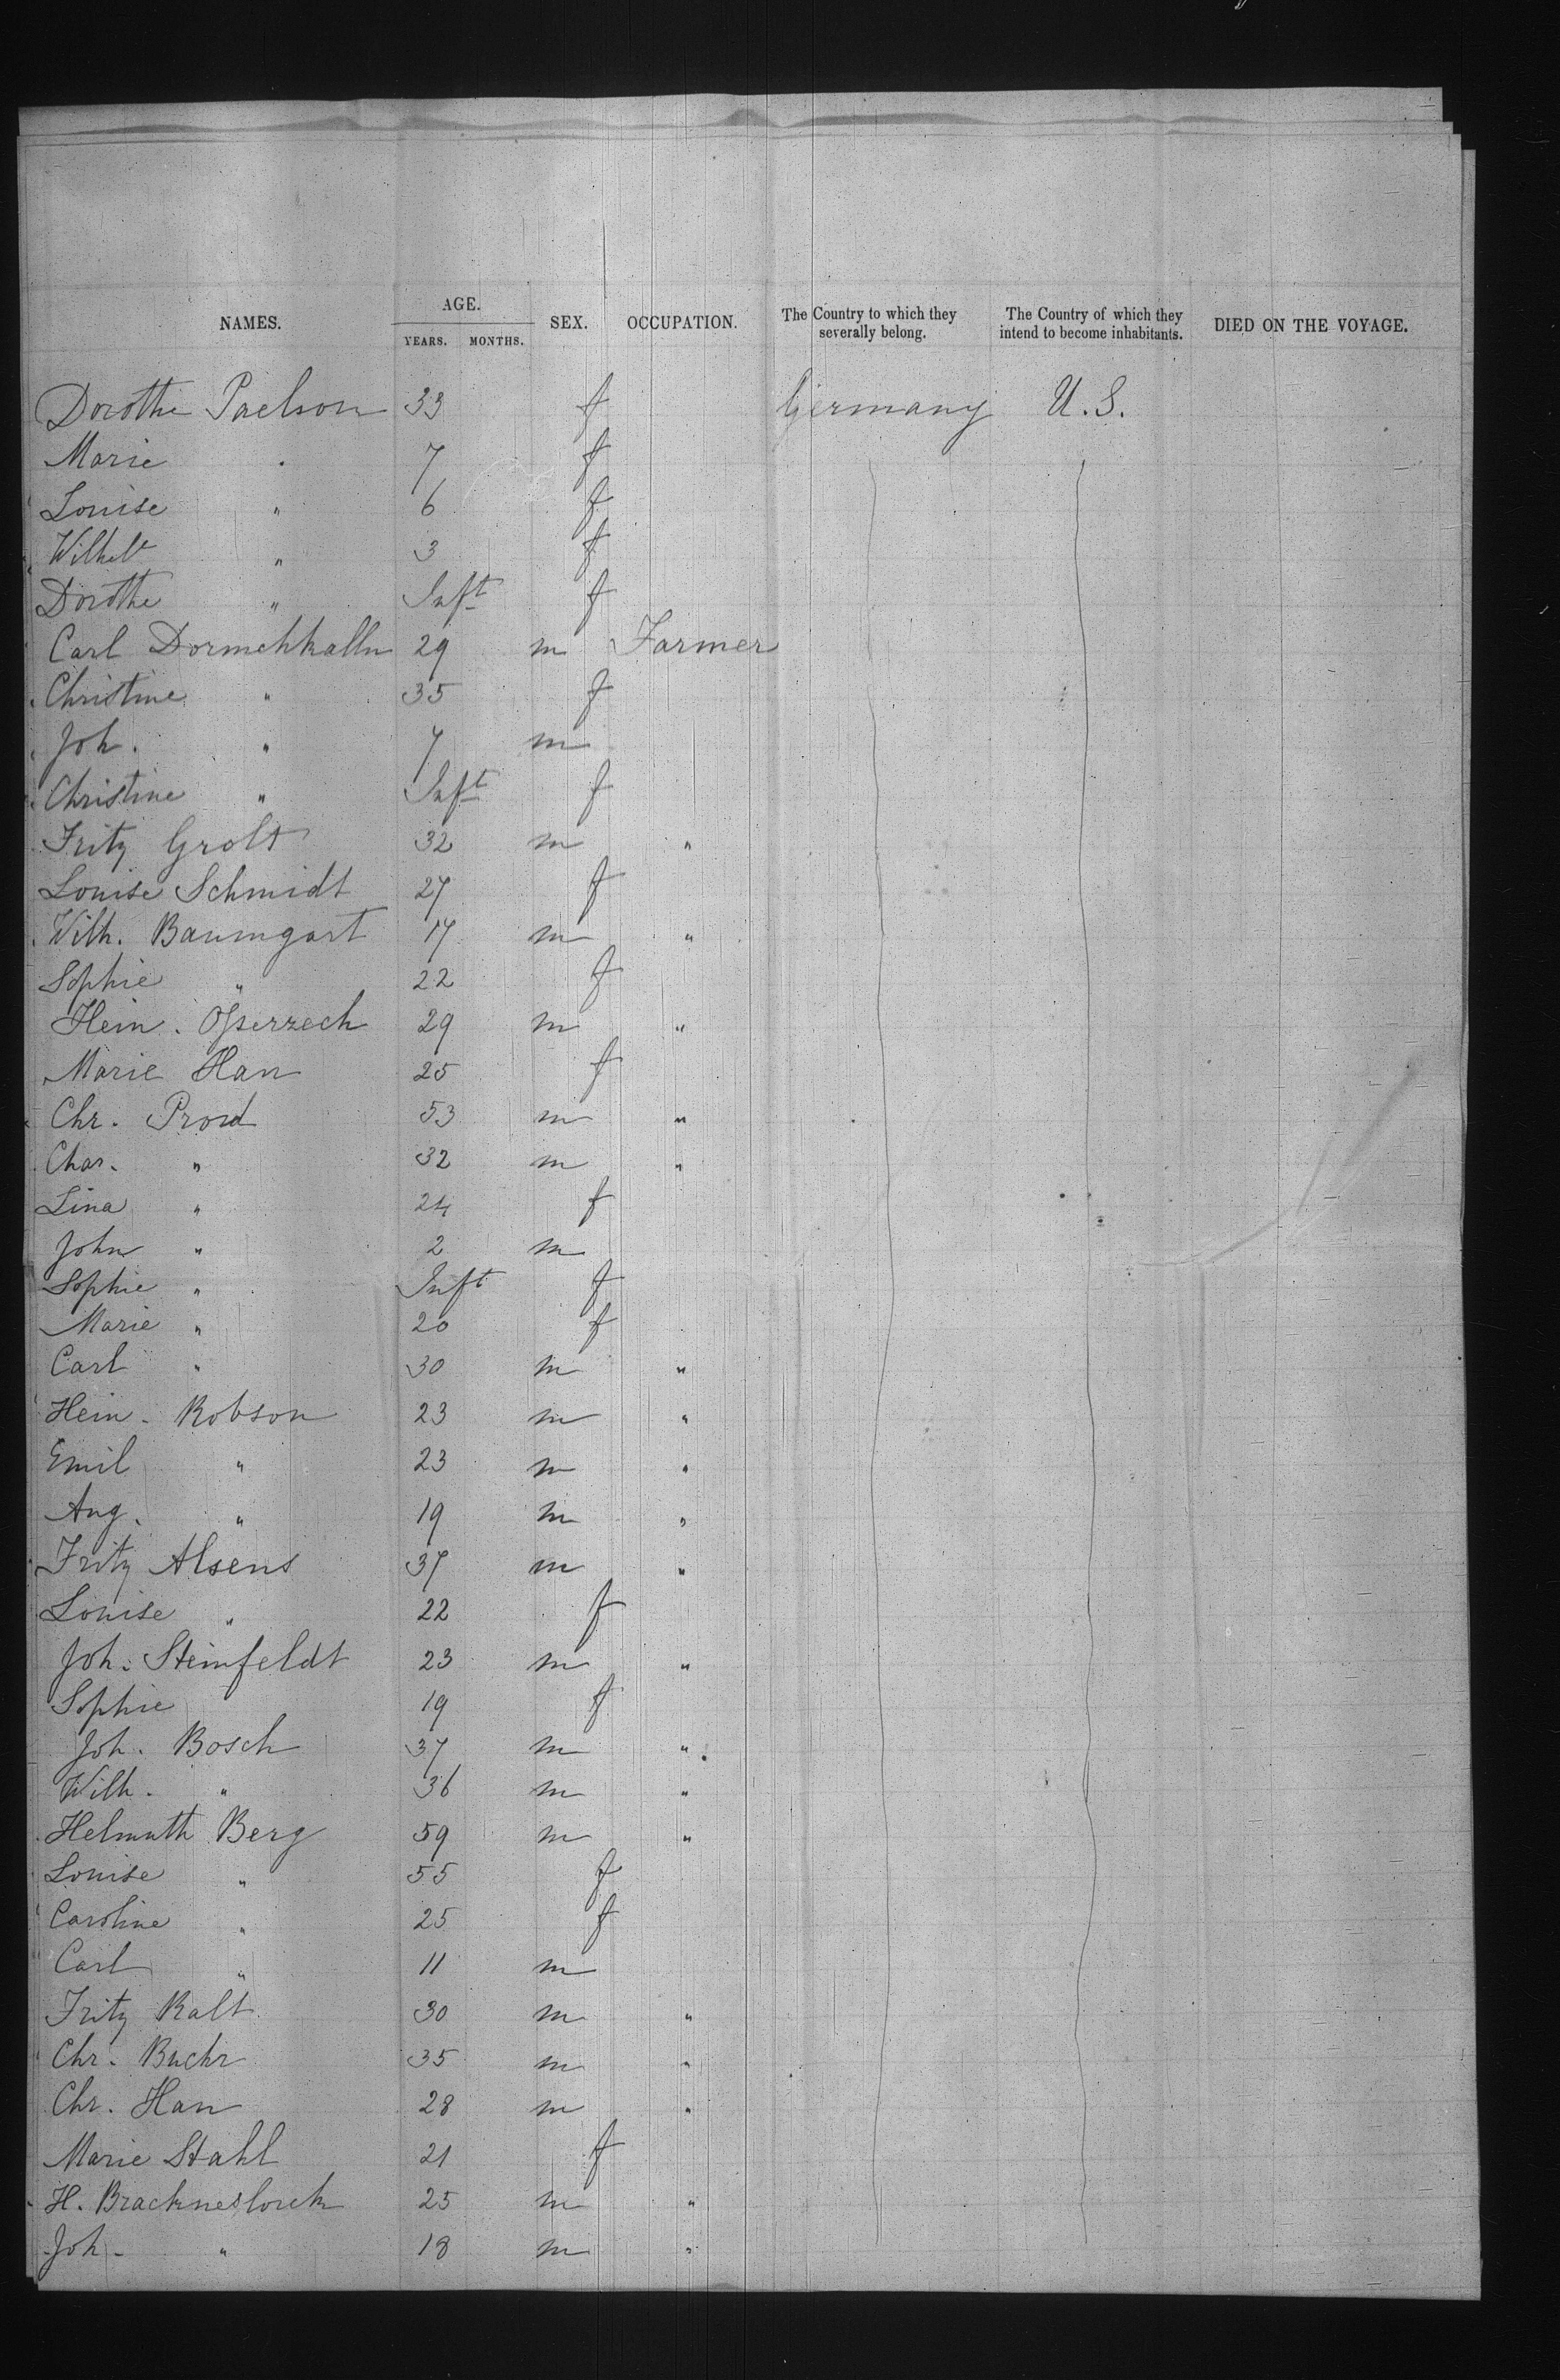 NAMES. AGE. YEARS. MONTHS. SEX. OCCUPATION. The Country to which they severally belong. The Country of which they intend to become inhabitants. DIED ON THE VOYAGE.
Dorothe Paelson 33 f Germany U.S.
Marie " 7 f
Louise " 6 f
Wilhelt " 3 f
Dorothe " Inft f
Carl Dormehkalln 29 m Farmer
Christine " 35 f
Joh. " 7 m
Christine " Inft f
Fritz Grolt 32 m "
Louise Schmidt 27 f
Wilh. Baumgart 17 m "
Sophie " 22 f
Hein. 29 m "
Marie Han 25 f
Chr. Prord 53 m "
Char. " 32 m "
Lina " 24 f
John " 2 m
Sophie " Inft f
Marie " 20 f
Carl " 30 m "
Hein. Robson 23 m "
Emil " 23 m "
Aug. " 19 m "
Fritz Alsens 37 m "
Louise " 22 f
Joh. Steinfeldt 23 m "
Sophie 19 f
Joh. Bosch 37 m "
Wilh. " 36 m "
Helmuth Berg 59 m "
Louise " 55 f
Caroline " 25 f
Carl " 11 m
Fritz Ralt 30 m "
Chr. Buchr 35 m "
Chr. Han 28 m "
Marie Stahl 21 f
H. Brackneslorck 25 m "
Joh. " 18 m "